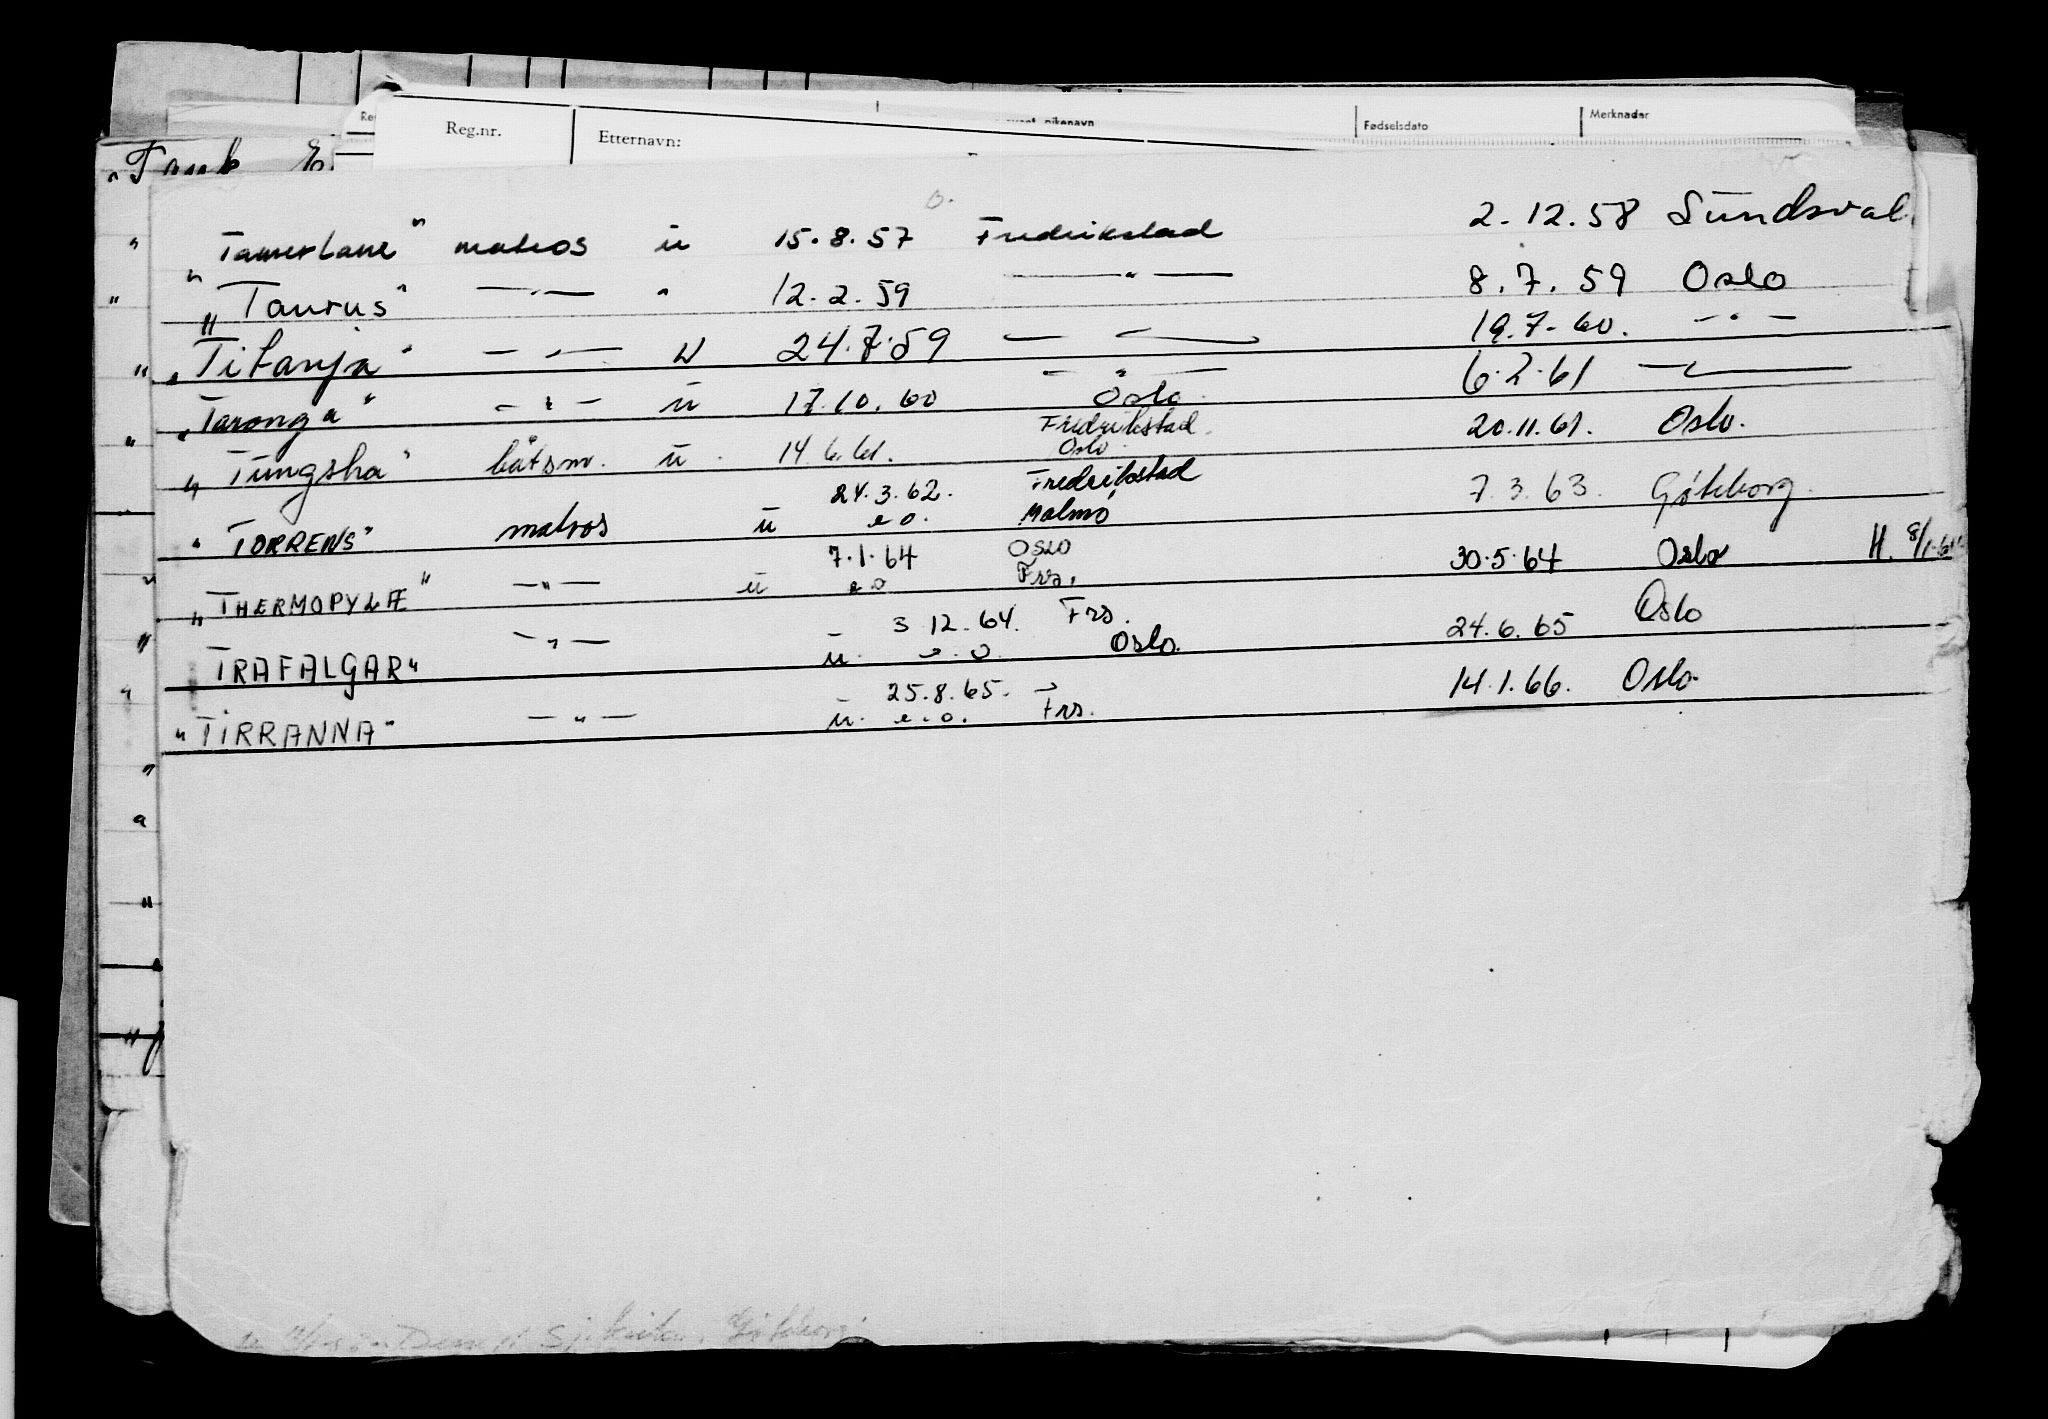 Reg.nr. Etternavn: Fødselsdato Merknader
"Tamerlane" matros u 15.8.57 Fredrikstad 2.12.58 Sundsval
"Taurus" — " — " 12.2.59 — " — 8.7.59 Oslo
"Titanja" — " — u 24.7.59 — " — 19.7.60. — " —
"Taronga" — " — u 17.10.60 — " — Oslo 6.2.61 — " —
"Tungsha" båtsm. u. 14.6.61. Fredrikstad Oslo 20.11.61. Oslo.
24.3.62. Fredrikstad 7.3.63. Gøteborg.
"TORRENS" matros u e.o. Malmö
7.1.64 Oslo 30.5.64 Oslo H.
"THERMOPYLÆ" — " — u e.o Frs.
3.12.64. Frs. 24.6.65 Oslo
"TRAFALGAR" — " — u. e.o. Oslo.
25.8.65. 14.1.66. Oslo
"TIRRANNA" — " — u. e.o. Frs.